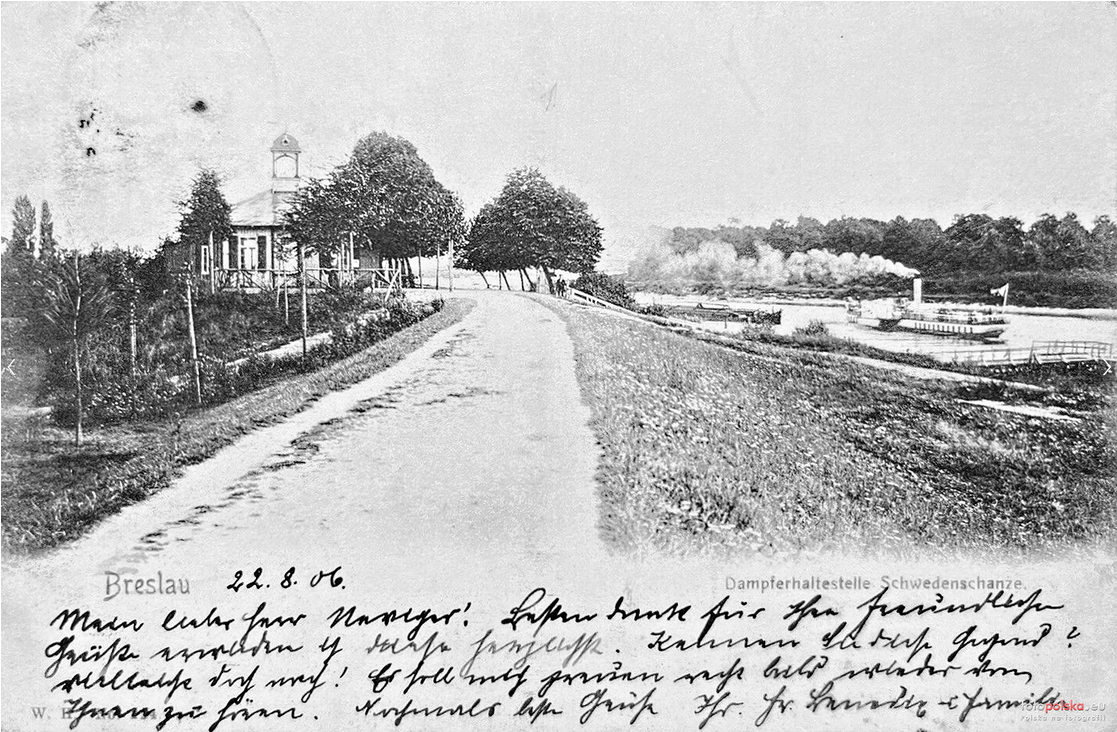 Breslau 22. 8. 06. Dampferhaltestelle Schwedenschanze.
Mein lieber Herr Neviger! Besten Dank für Ihre freundlichen
Grüße erwidern ich diese herzlichst. Kennen Sie diese Gegend?
vielleicht doch noch! Es soll mich freuen recht bald wieder von
Ihnen zu hören. Nochmals beste Grüße Ihr. Fr. Benedix & Familie
W.
fotopolska.eu
Polska na fotografii